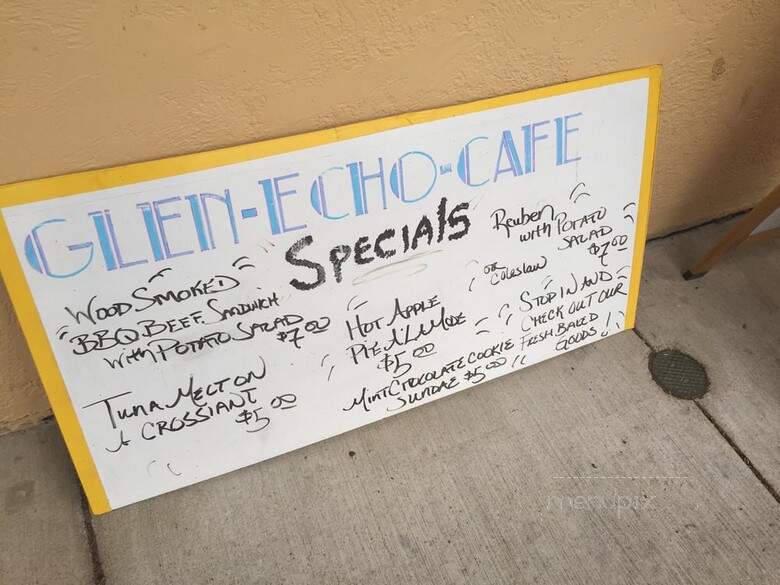 GLEN-ECHO-CAFE
SPECIALS
"WOOD SMOKED"
"BBQ BEEF SANDWICH
WITH POTATO SALAD
$7.00
TUNA MELT ON
A CROSSIANT
$5.00
HOT APPLE
PIE A'LA MODE
$5.00
MINT CHOCOLATE COOKIE
SUNDAE $5.00
Reuben
with POTATO
SALAD
$7.00
OR
Coleslaw
STOP IN AND
CHECK OUT OUR
FRESH BAKED
GOODS!!
menupix